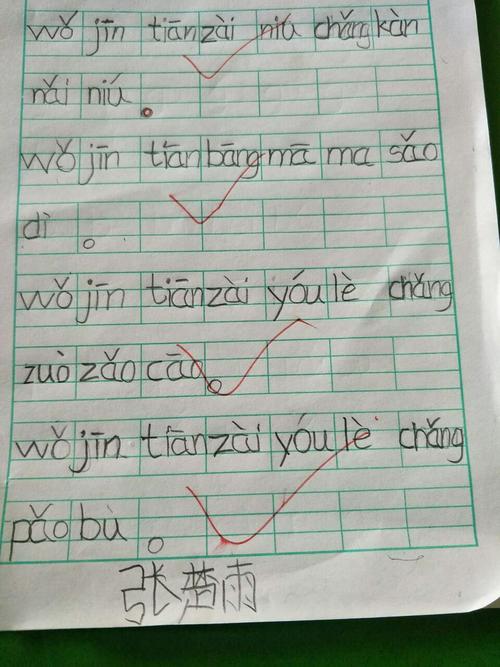 wǒ jīn tiān zài niú chǎng kàn
nǎi niú 。
wǒ jīn tiān bāng mā ma sǎo
dì 。
wǒ jīn tiān zài yóu lè chǎng
zuò zǎo cāo 。
wǒ jīn tiān zài yóu lè chǎng
pǎo bù 。
张楚雨